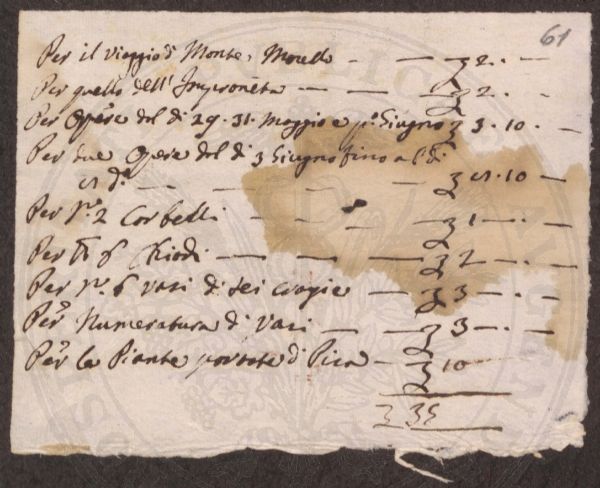 61
Per il viaggio di Monte Morello — — ʒ 2. —
Per quello dell'Impruneta — — — ʒ 2. —
Per Opere del di 29. 31. Maggio e p.º Giugno ʒ 3. 10. —
Per due Opere del di 3 Giugno fino al di
di — — — — ʒ 10 —
Per N.º 2 Corbelli — — — ʒ 1 — . —
Per 6 Chiodi — — — ʒ 2 — . —
Per N.º 6 Vasi di sei crazie — ʒ 3 — . —
Per Numeratura di Vasi — — ʒ 3 — . —
Per le Piante portate di Pisa — ʒ 10
ʒ 35